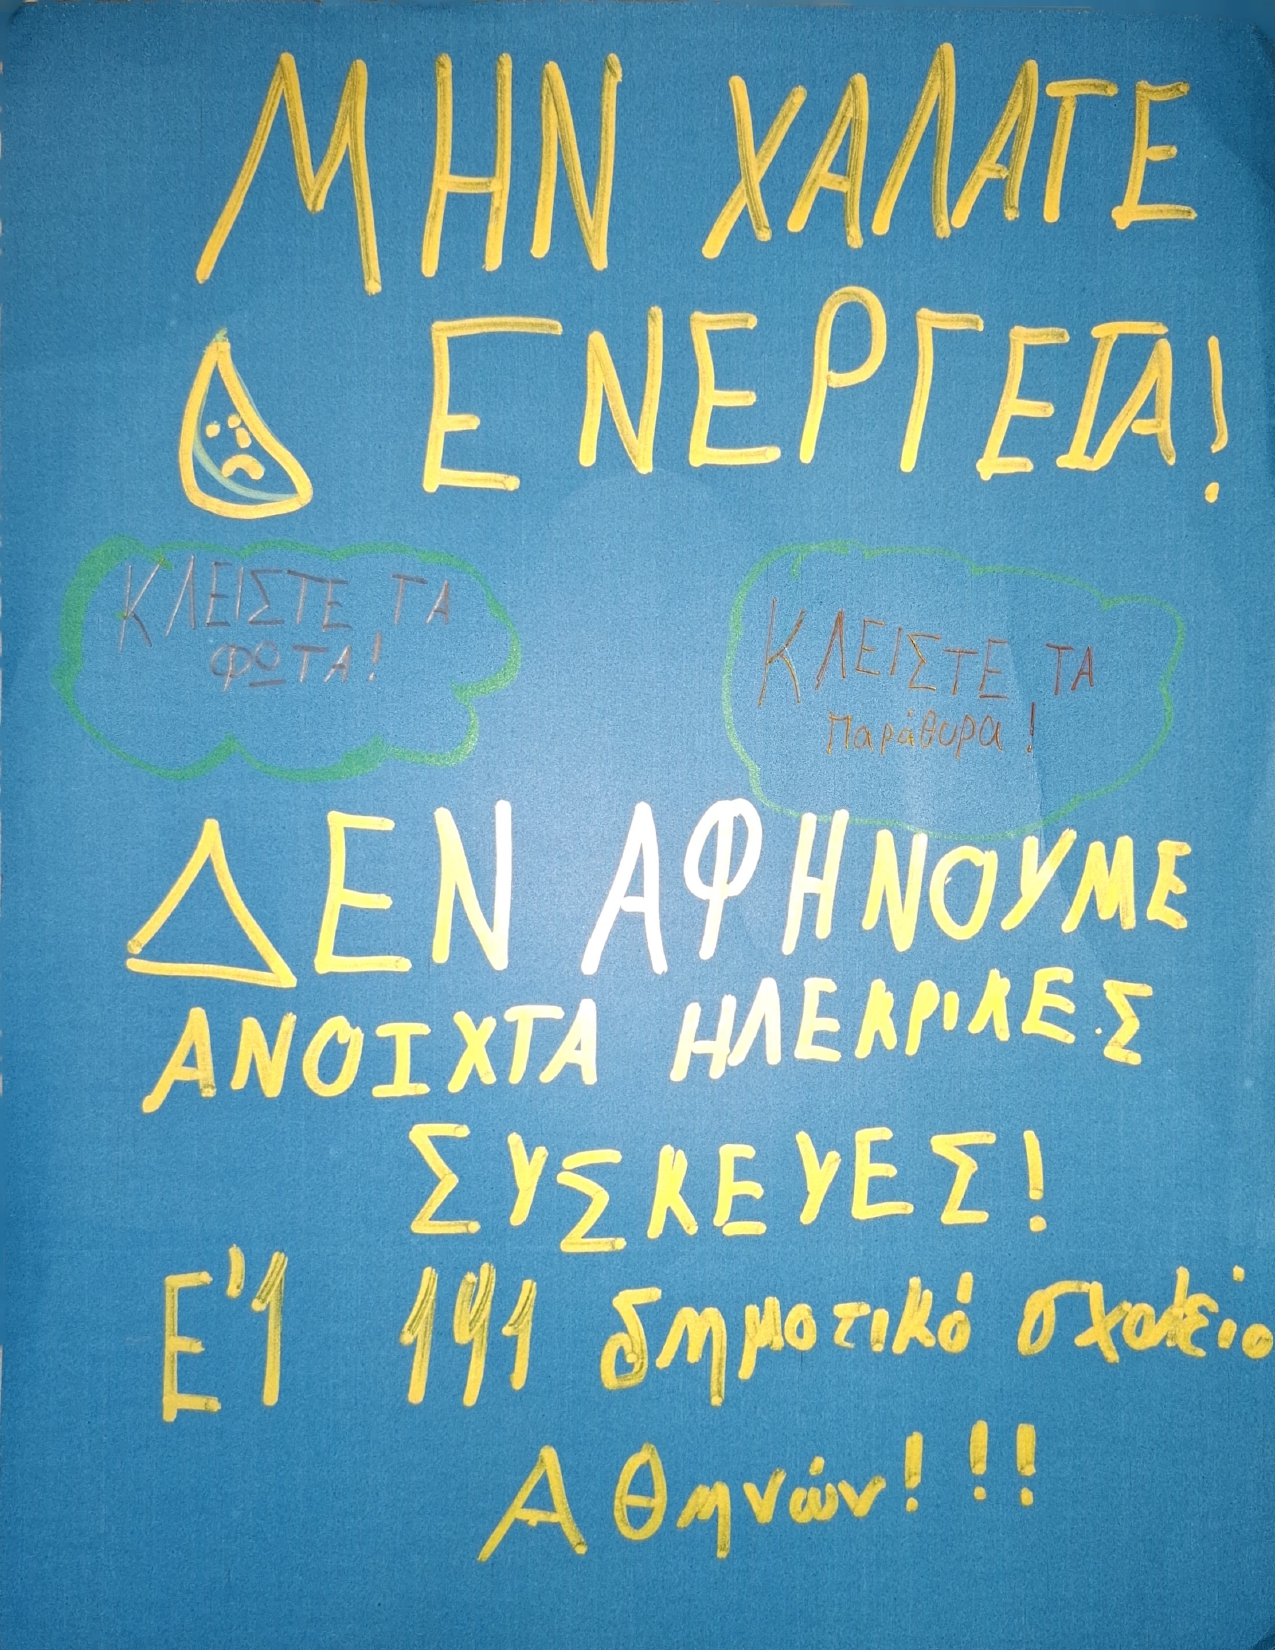 ΜΗΝ ΧΑΛΑΤΕ
ΕΝΕΡΓΕΙΑ!
ΚΛΕΙΣΤΕ ΤΑ
ΦΩΤΑ!
ΚΛΕΙΣΤΕ ΤΑ
παράθυρα!
ΔΕΝ ΑΦΗΝΟΥΜΕ
ΑΝΟΙΧΤΑ ΗΛΕΚΡΙΚΕΣ
ΣΥΣΚΕΥΕΣ!
Ε'1 141 δημοτικό σχολείο
Αθηνών!!!